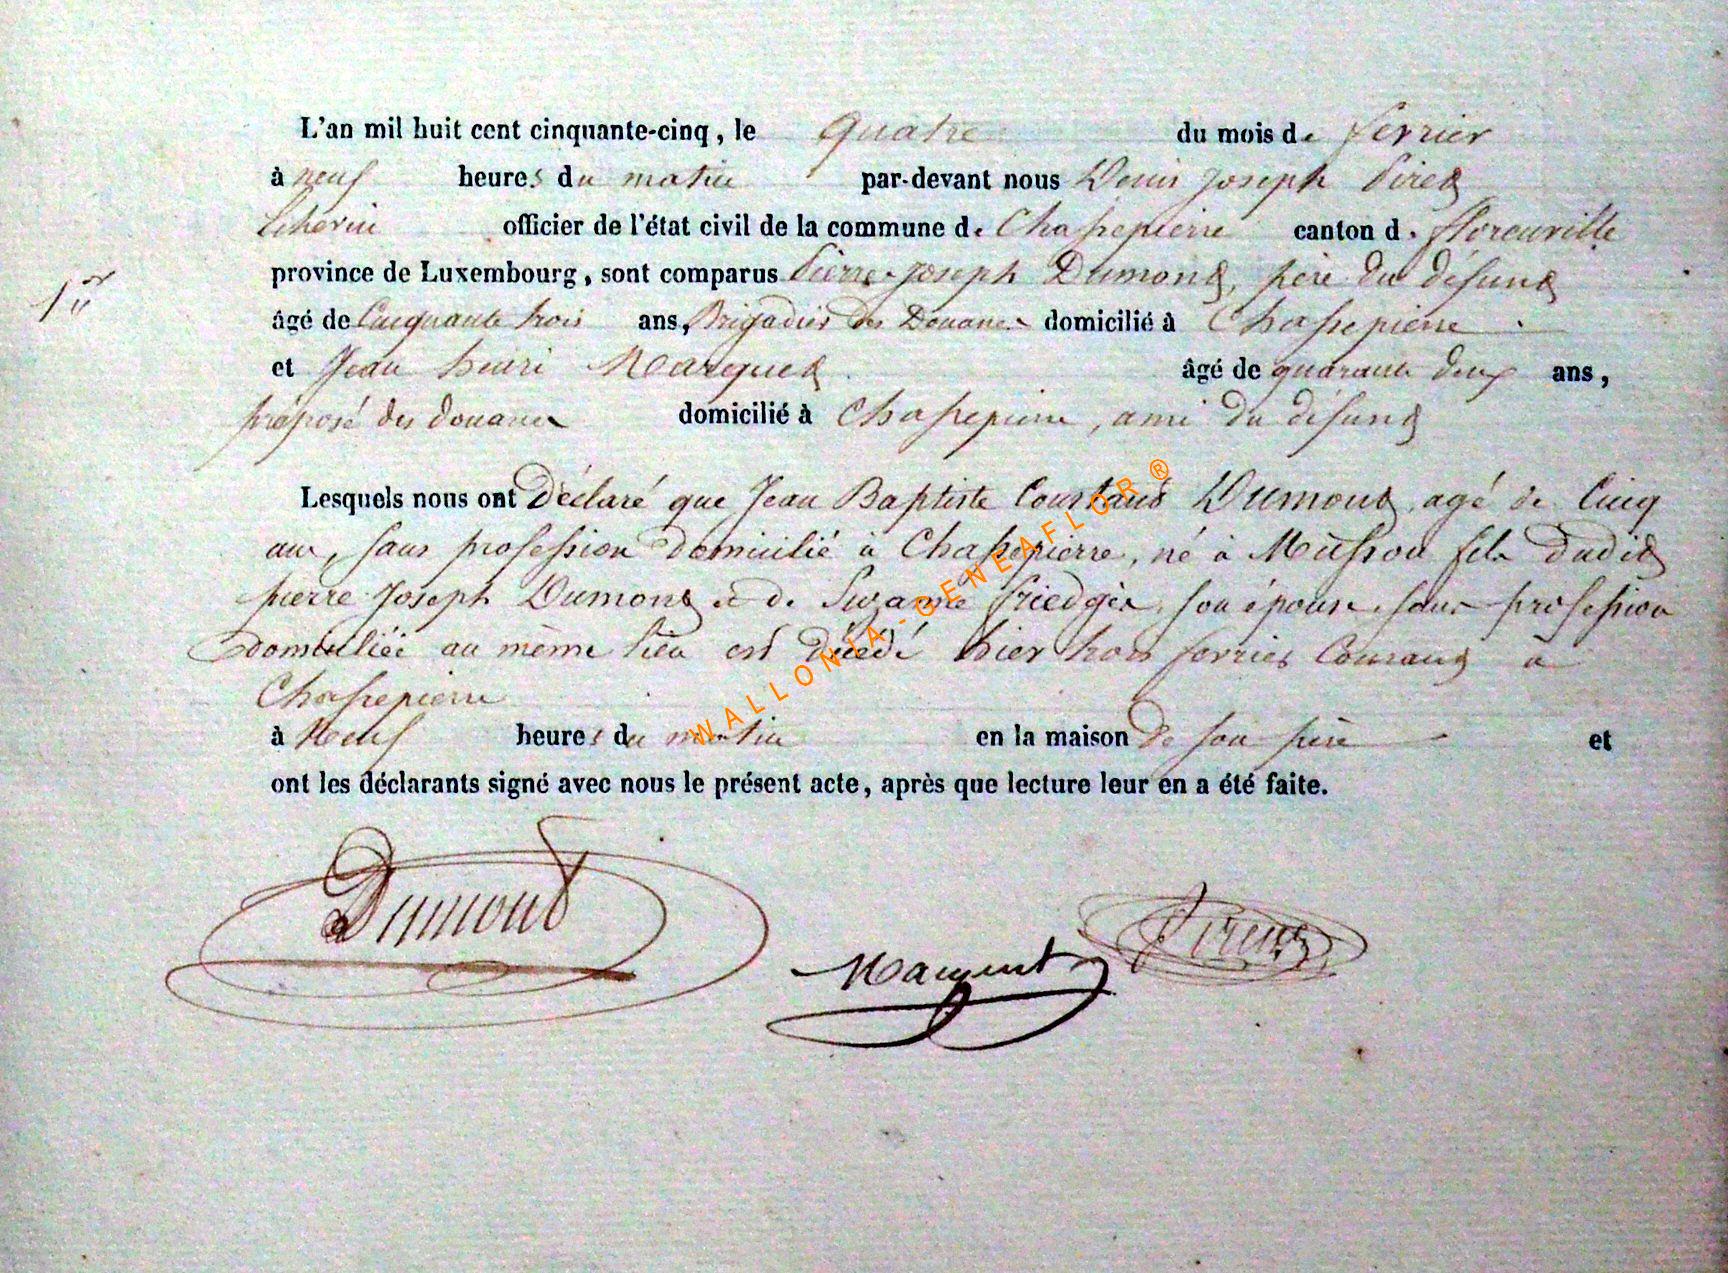 L'an mil huit cent cinquante-cinq, le quatre du mois de ferrier
à neuf heures du matin par-devant nous Denis Joseph
Echevin officier de l'état civil de la commune de Chassepierre canton de florenville
province de Luxembourg, sont comparus Pierre Joseph Dumont, père du défunt
âgé de Cinquante trois ans, Brigadier des Douanes domicilié à Chassepierre
et Jean henri Marquet âgé de quarante deux ans,
préposé des douanes domicilié à Chassepierre, ami du défunt
1er
Lesquels nous ont Déclaré que Jean Baptiste Constant Dumont agé de Cinq
ans, sans profession domicilié à Chassepierre, né à Musson fils dudit
pierre Joseph Dumont et de Suzanne son épouse sans profession
domiciliée au même lieu est décédé hier trois ferrier Courant à
Chassepierre
à Neuf heures du matin en la maison de son père et
ont les déclarants signé avec nous le présent acte, après que lecture leur en a été faite.
Dumont
Marquet
WALLONIA-GENEAFLOR ®